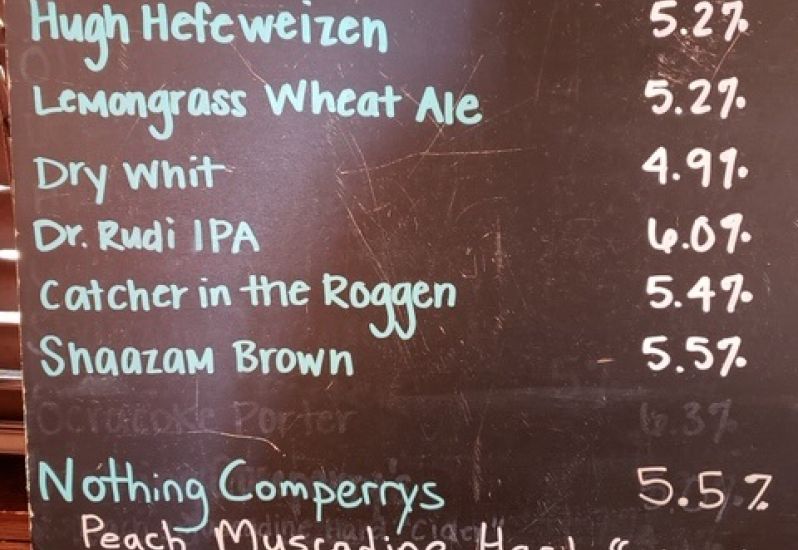 Hugh Hefeweizen 5.2%
Lemongrass Wheat Ale 5.2%
Dry Whit 4.9%
Dr. Rudi IPA 6.0%
Catcher in the Roggen 5.4%
Shaazam Brown 5.5%
Ocracoke Porter 6.3%
Nothing Comperrys 5.5%
Peach Muscadine Hard